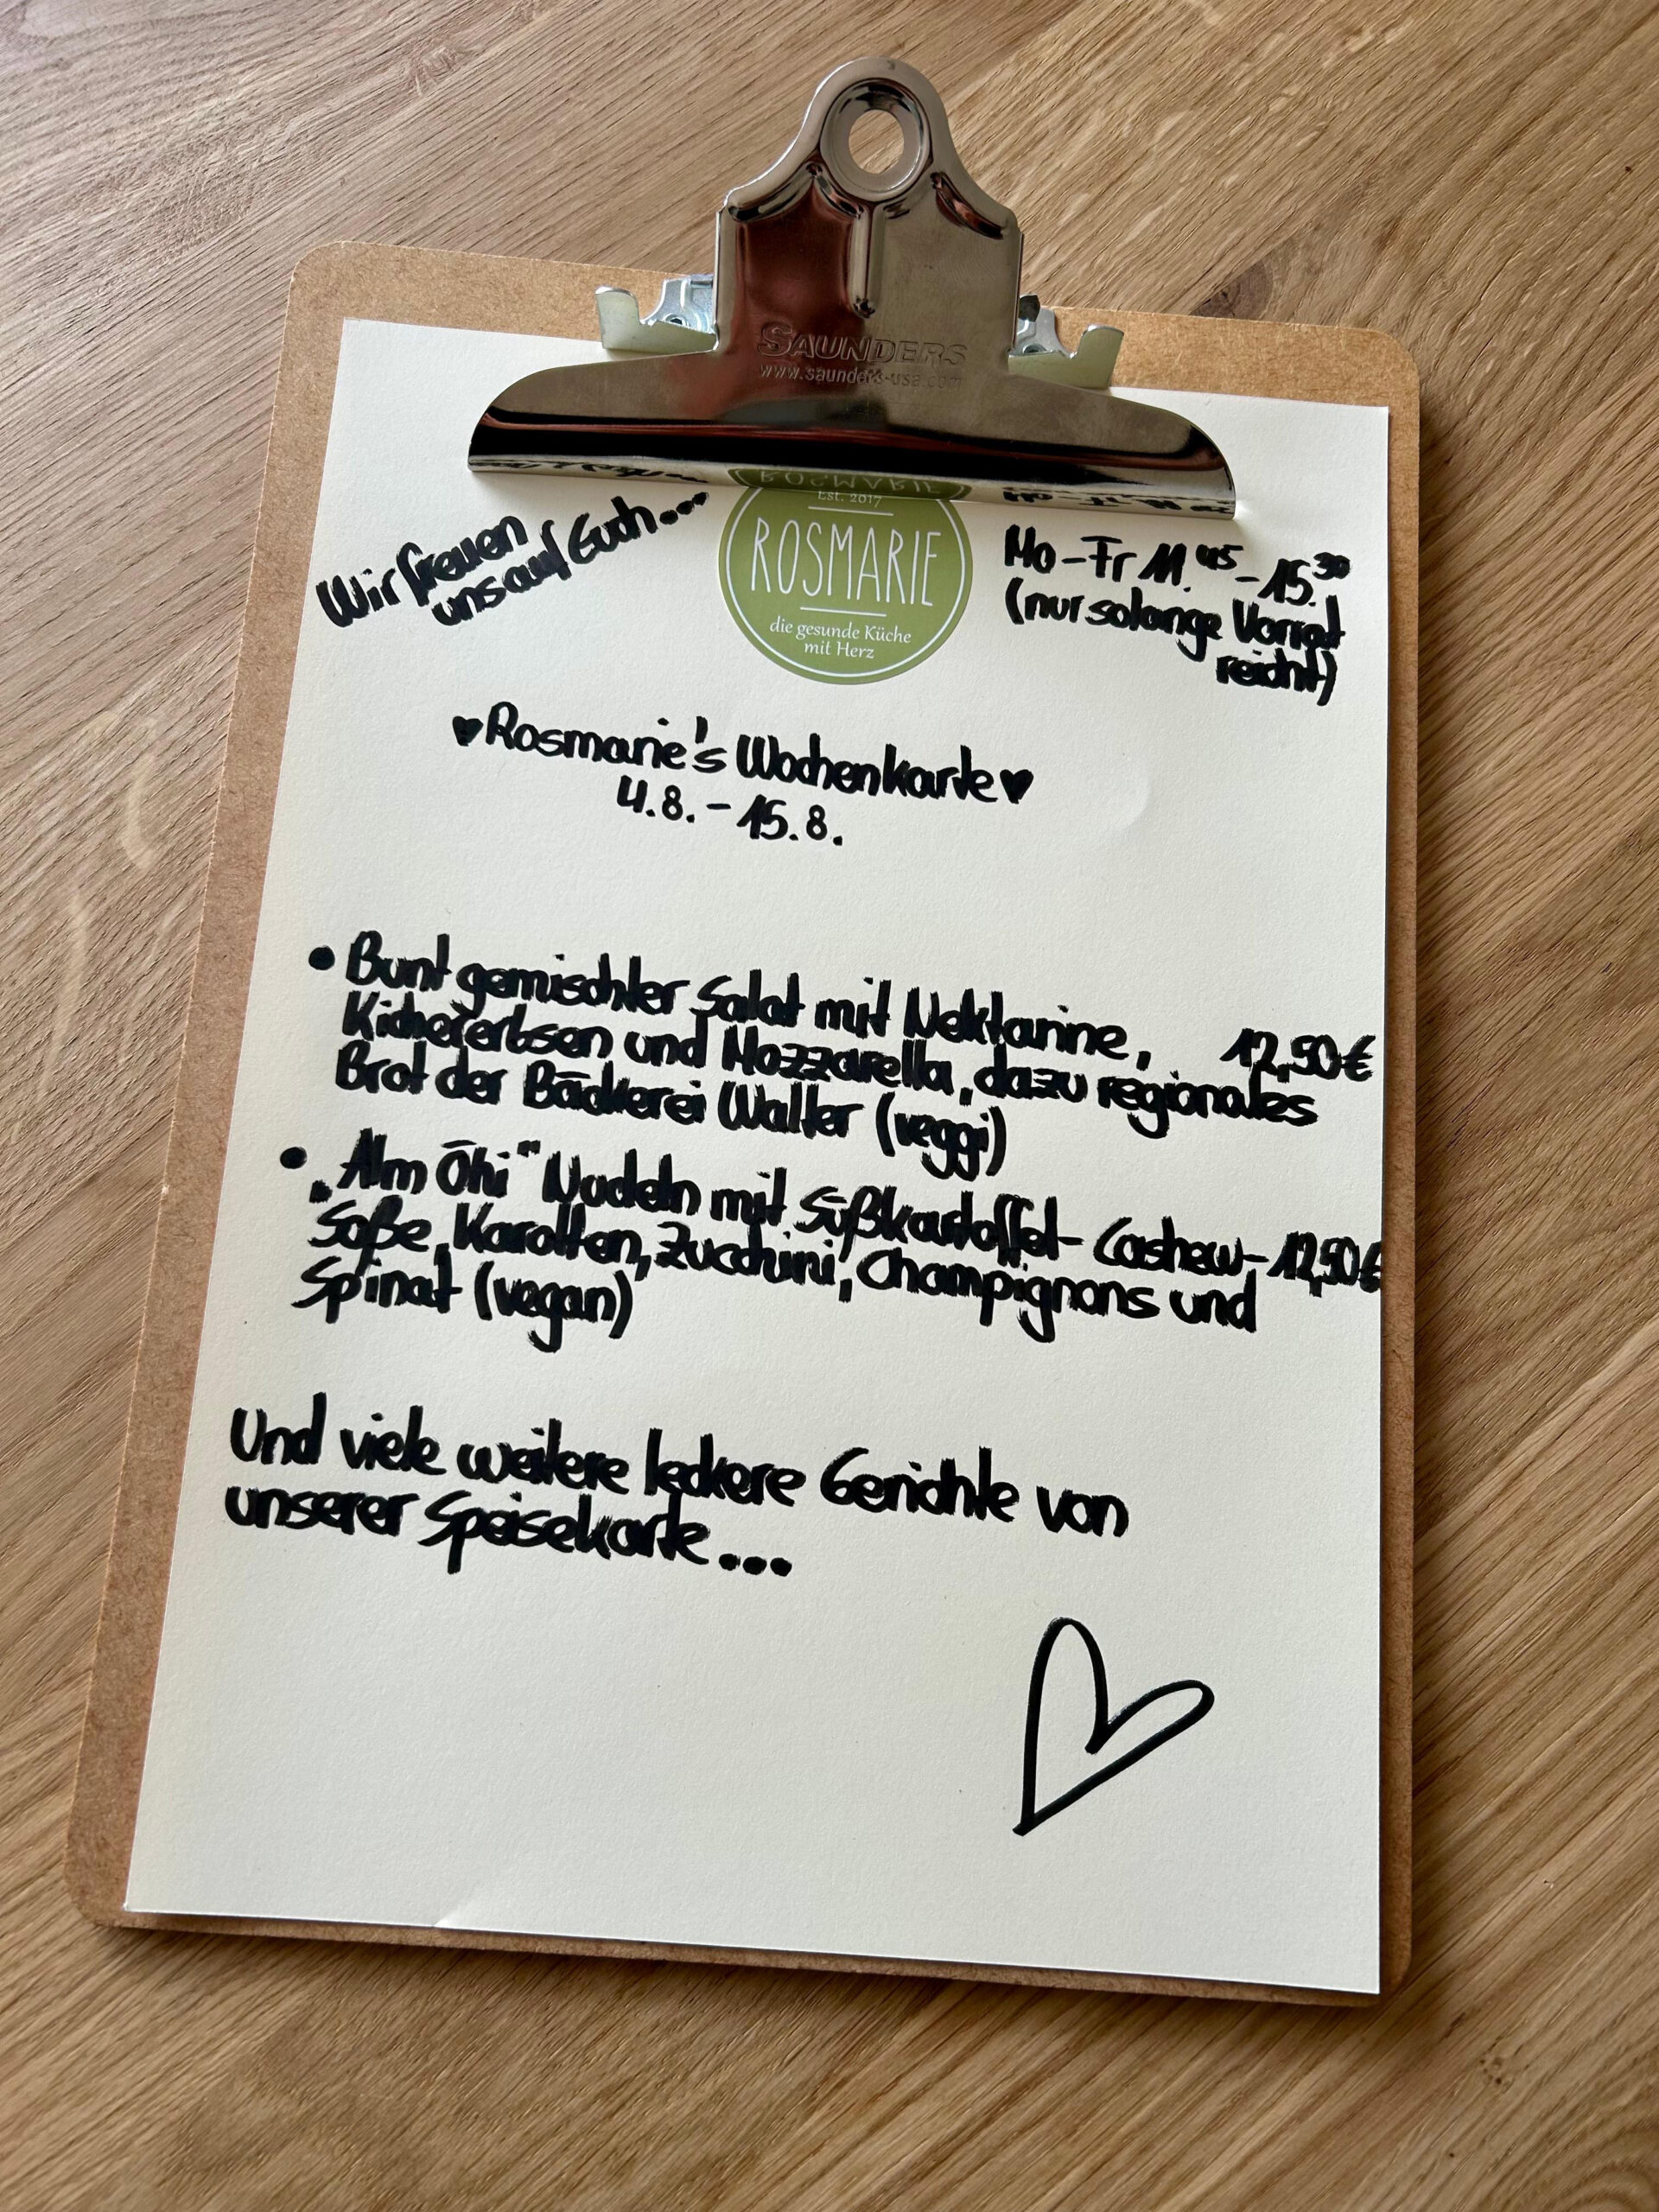 SAUNDERS
www.saunders-usa.com
Wir freuen
uns auf Euch...
ROSMARIE
Est. 2017
ROSMARIE
die gesunde Küche
mit Herz
Mo-Fr 11.45-15.30
(nur solange Vorrat
reicht)
♥Rosmarie's Wochenkarte♥
4.8. - 15.8.
• Bunt gemischter Salat mit Nektarine, 12,50€
Kichererbsen und Mozzarella, dazu regionales
Brot der Bäckerei Walter (veggi)
• „Alm Öhi" Nudeln mit Süßkartoffel-Cashew- 12,50€
Soße, Karotten, Zucchini, Champignons und
Spinat (vegan)
Und viele weitere leckere Gerichte von
unserer Speisekarte...